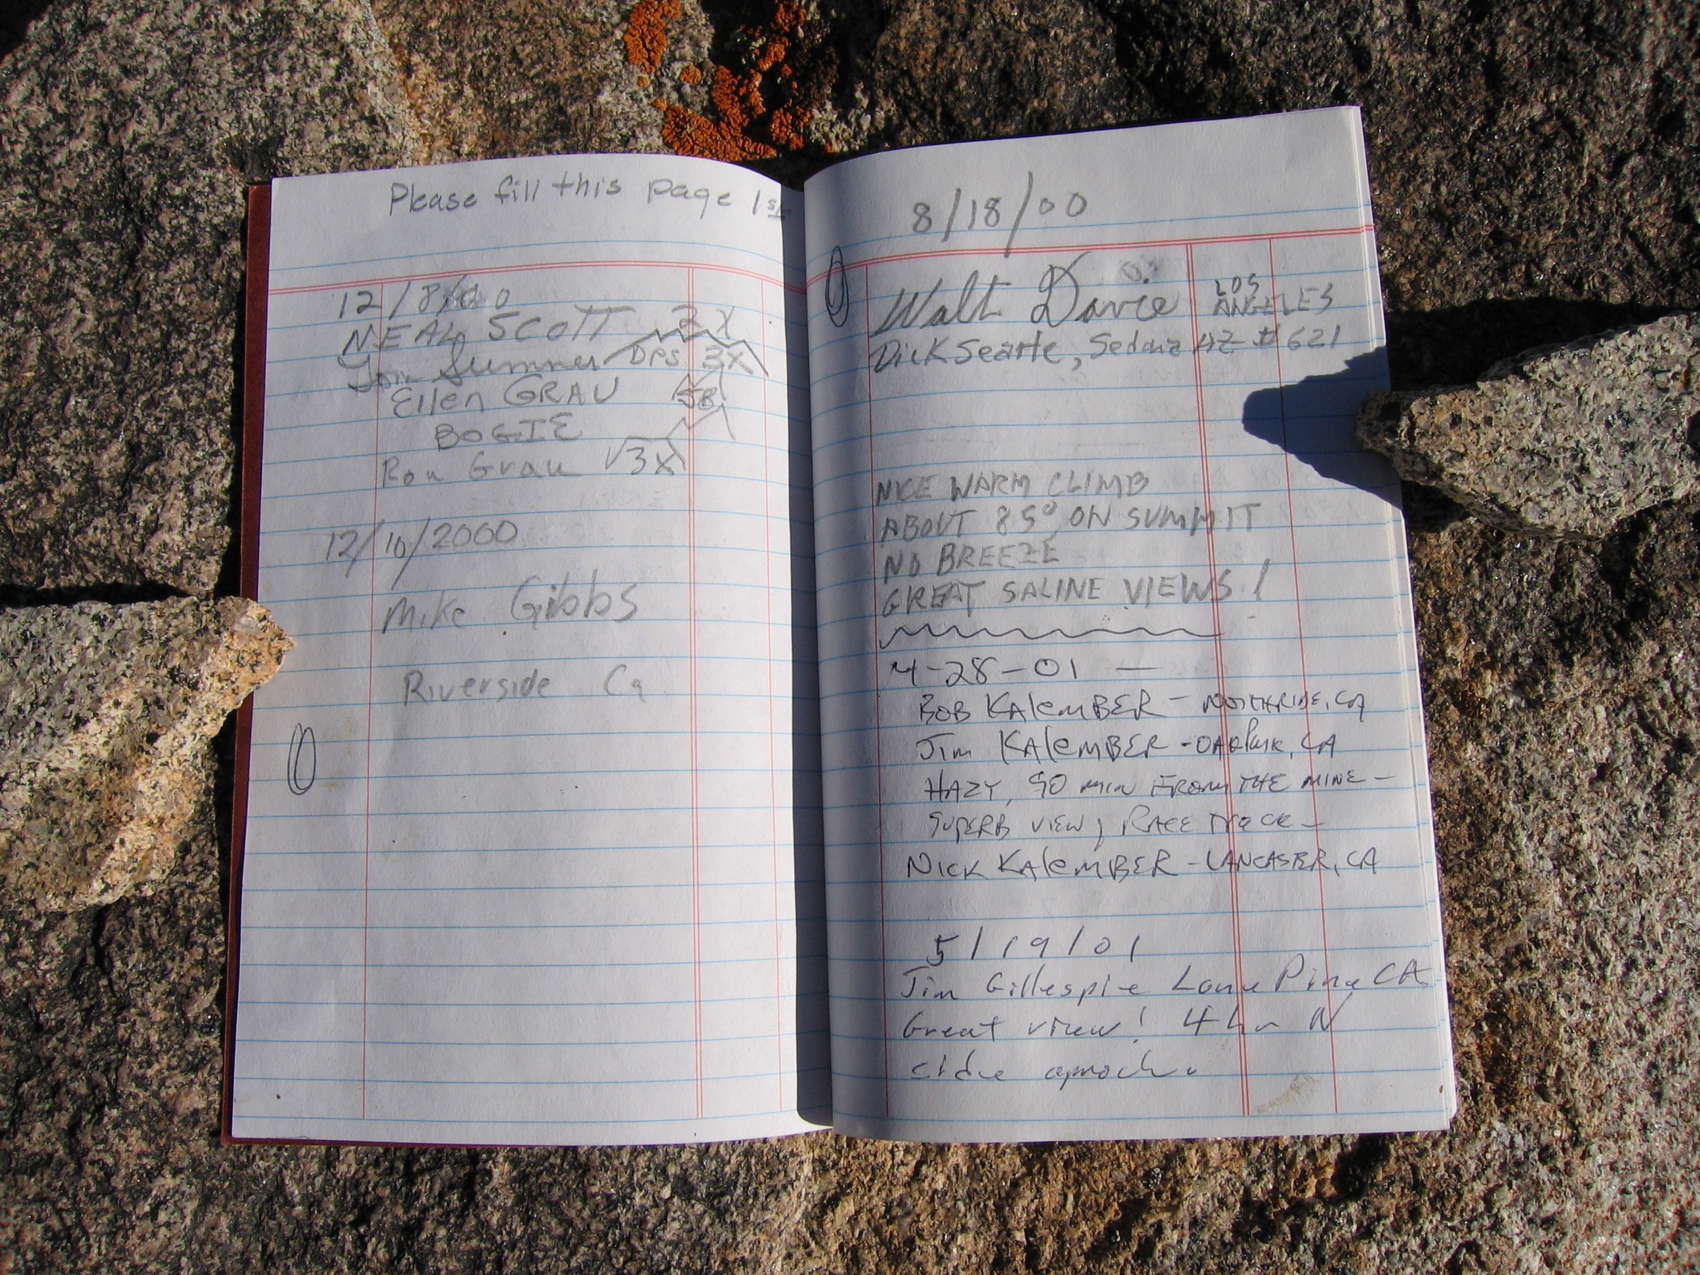 Please fill this page 1st
12/8/00
NEAL SCOTT 2X
Tom Sumner DPS 3X
Ellen GRAU
BOGIE
Ron Grau √3X
12/10/2000
Mike Gibbs
Riverside Ca
8/18/00
Walt Davie LOS ANGELES
Dick Searle, Sedona AZ #621
NICE WARM CLIMB
ABOUT 85° ON SUMMIT
NO BREEZE
GREAT SALINE VIEWS!
4-28-01 —
BOB KALEMBER - NORTHRIDGE, CA
Jim KALEMBER - OAK Park, CA
HAZY, 90 min FROM THE MINE -
SUPERB VIEW, RACE TRACK -
NICK KALEMBER - LANCASTER, CA
5/19/01
Jim Gillespie Lone Pine CA
Great view! 4 hr N